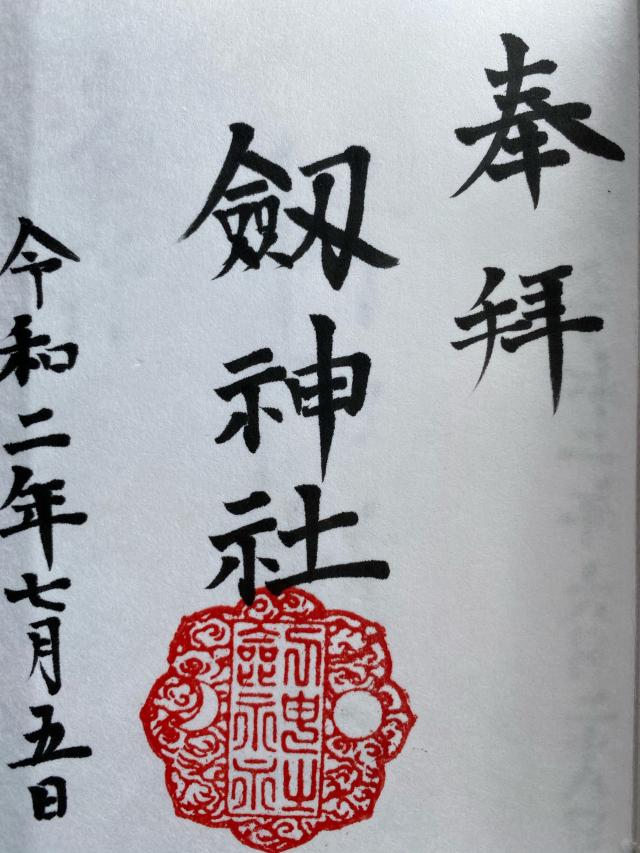 奉拝
劔神社
令和二年七月五日